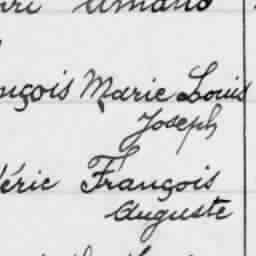 Armand
nçois Marie Louis
Joseph
déric François
Auguste